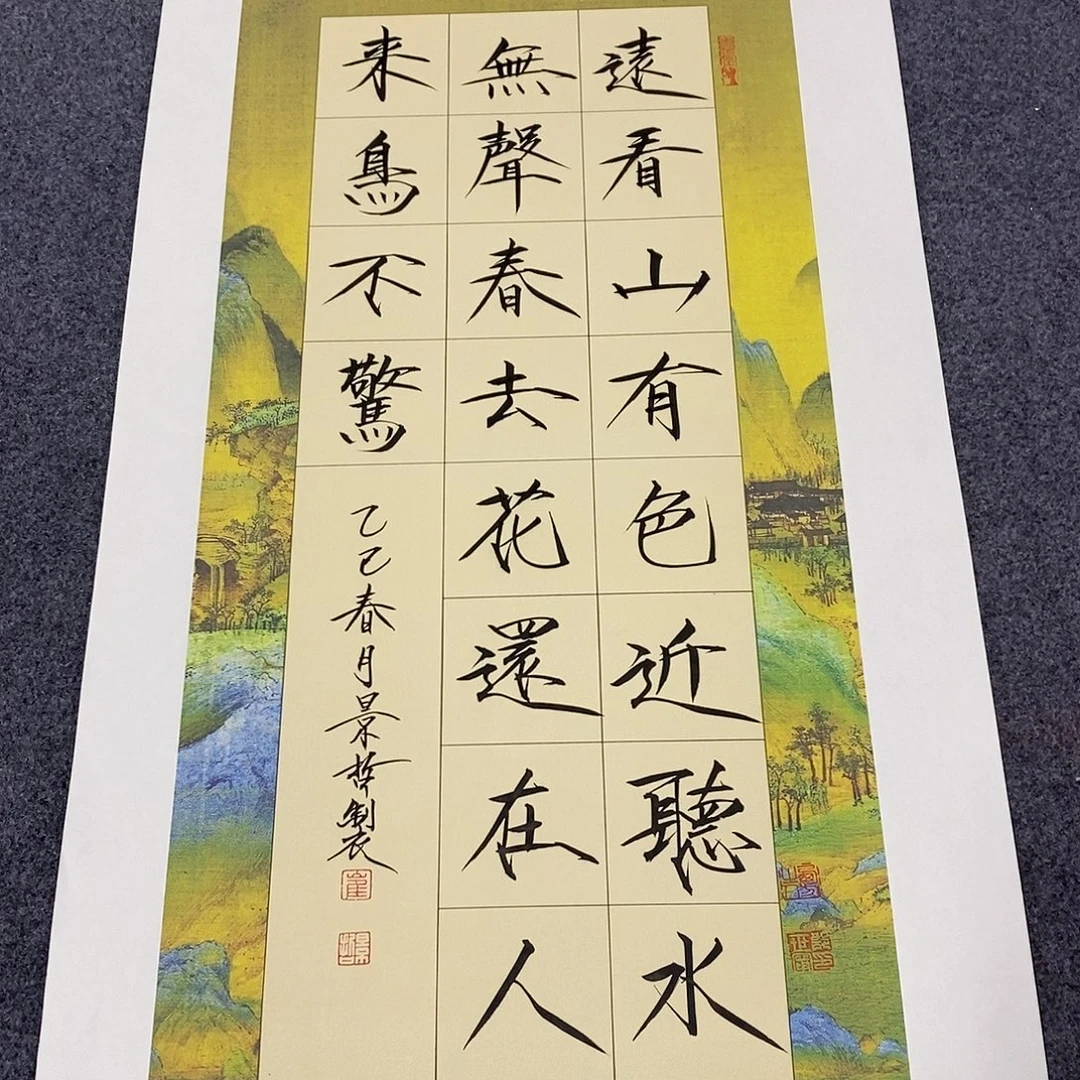 遠看山有色近聽水
無聲春去花還在人
来鳥不驚
乙巳春月景哲製
崔